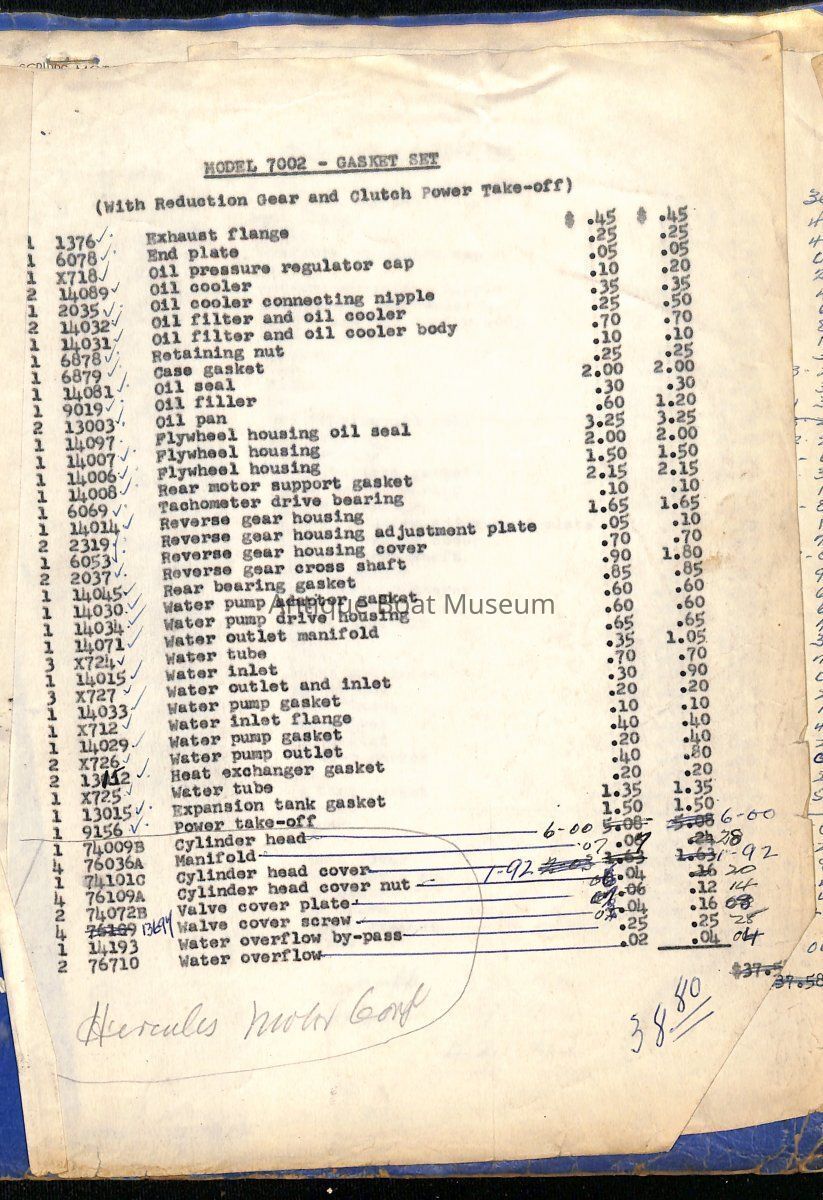 MODEL 7002 - GASKET SET
(With Reduction Gear and Clutch Power Take-off)
1 1376 ✓ Exhaust flange $ .45 $ .45
1 6078 ✓ End plate .25 .25
1 X718 ✓ Oil pressure regulator cap .05 .05
2 14089 ✓ Oil cooler .10 .20
1 2035 ✓ Oil cooler connecting nipple .35 .35
2 14032 ✓ Oil filter and oil cooler .25 .50
1 14031 ✓ Oil filter and oil cooler body .70 .70
1 6878 ✓ Retaining nut .10 .10
1 6879 ✓ Case gasket .25 .25
1 14081 ✓ Oil seal 2.00 2.00
1 9019 ✓ Oil filler .30 .30
2 13003 ✓ Oil pan .60 1.20
1 14097 ✓ Flywheel housing oil seal 3.25 3.25
1 14007 ✓ Flywheel housing 2.00 2.00
1 14006 ✓ Flywheel housing 1.50 1.50
1 14008 ✓ Rear motor support gasket 2.15 2.15
1 6069 ✓ Tachometer drive bearing .10 .10
1 14014 ✓ Reverse gear housing 1.65 1.65
2 2319 ✓ Reverse gear housing adjustment plate .05 .10
1 6053 ✓ Reverse gear housing cover .70 .70
2 2037 ✓ Reverse gear cross shaft .90 1.80
1 14045 ✓ Rear bearing gasket .85 .85
1 14030 ✓ Water pump adapter gasket .60 .60
1 14034 ✓ Water pump drive housing .60 .60
1 14071 ✓ Water outlet manifold .65 .65
3 X724 ✓ Water tube .35 1.05
1 14015 ✓ Water inlet .70 .70
3 X727 ✓ Water outlet and inlet .30 .90
1 14033 ✓ Water pump gasket .20 .20
1 X712 ✓ Water inlet flange .10 .10
1 14029 ✓ Water pump gasket .40 .40
2 X726 ✓ Water pump outlet .20 .40
2 13152 ✓ Heat exchanger gasket .40 .80
1 X725 ✓ Water tube .20 .20
1 13015 ✓ Expansion tank gasket 1.35 1.35
1 9156 ✓ Power take-off 1.50 1.50
1 74009B Cylinder head 6-00 5.08 5.08 6-00
4 76036A Manifold .07 .06 .24 28
1 74101C Cylinder head cover 1-92 1.63 1.63 1-92
4 76109A Cylinder head cover nut .04 .16 20
2 74072B Valve cover plate .06 .12 14
4 76189 13694 Valve cover screw .04 .16 08
1 14193 Water overflow by-pass .25 .25 25
2 76710 Water overflow .02 .04 04
$37.5
37.58
38.80
Hercules Motor Corp
Antique Boat Museum